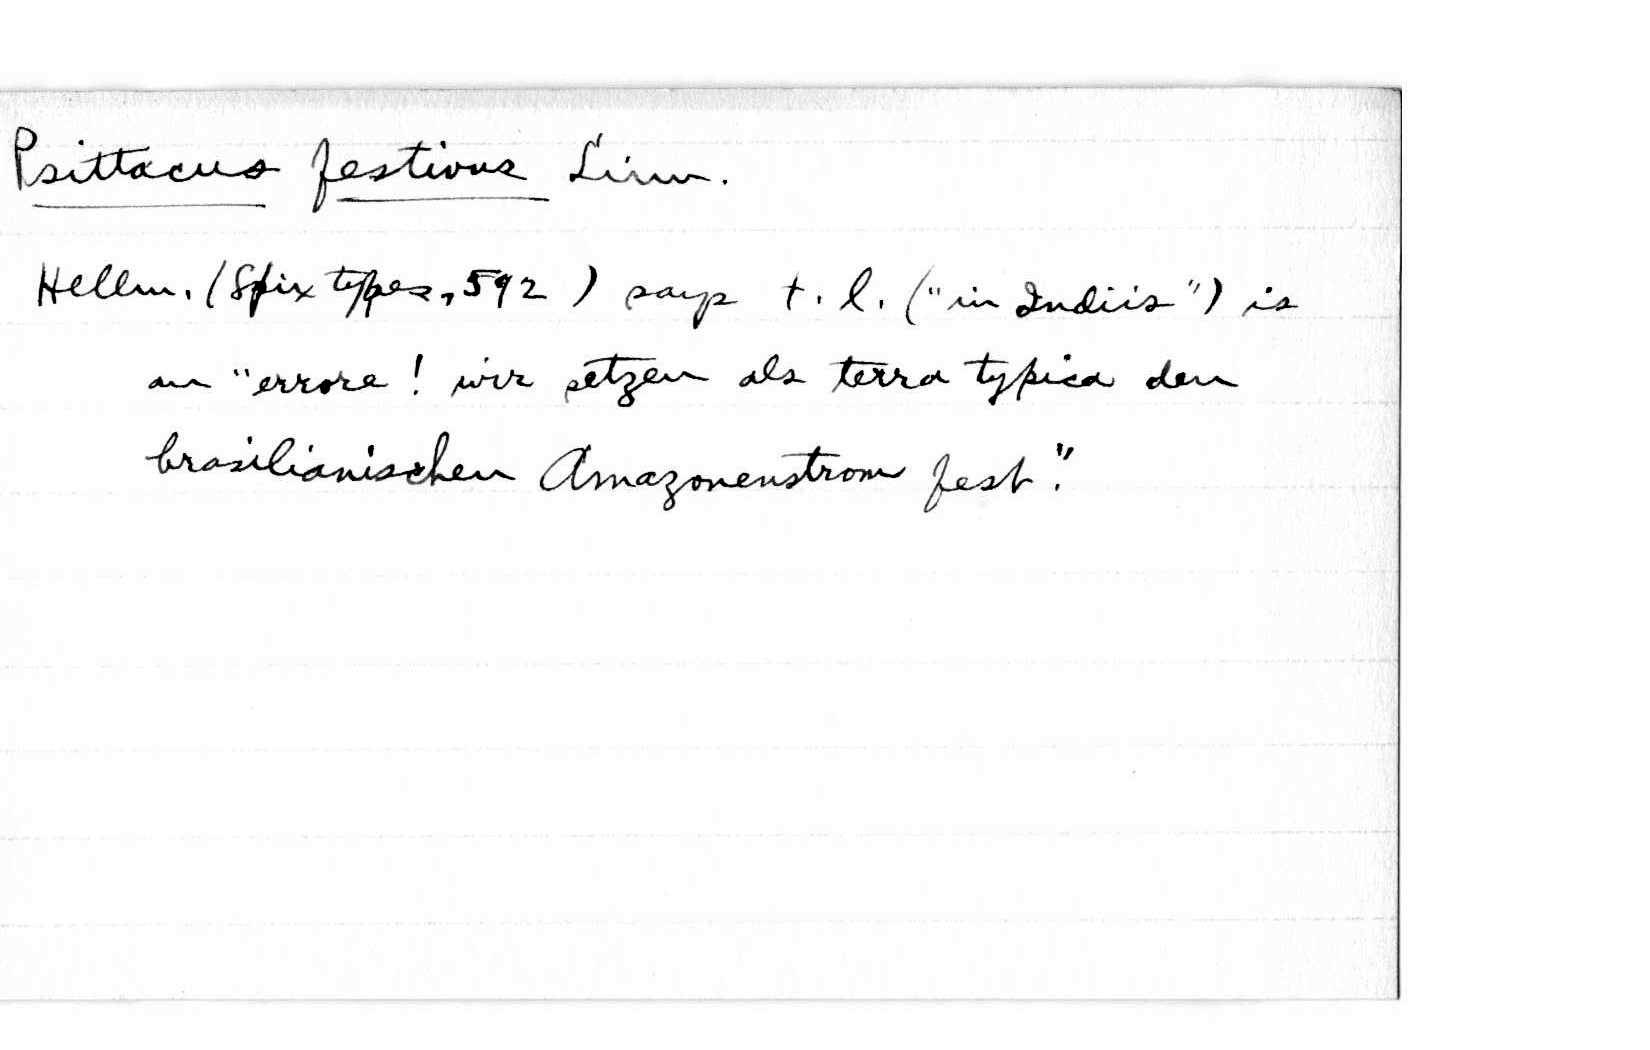 Psittacus festivus Linn.
Hellm. (Spix types, 592) says t. l. ("in Indiis") is
an "errore! wir setzen als terra typica den
brasilianischen Amazonenstrom fest".